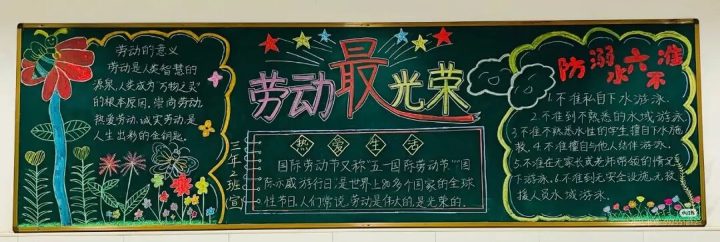 劳动的意义
劳动是人类智慧的
源泉,人类成为“万物之灵”
的根本原因,崇尚劳动,
热爱劳动,诚实劳动是
人生出彩的金钥匙。
劳动最光荣
三年2班宣
热爱生活
国际劳动节又称“五一国际劳动节”“国
际示威游行日”,是世界上80多个国家的全球
性节日,人们常说,劳动是伟大的,是光荣的.
防溺水六不准
1.不准私自下水游泳.
2.不准到不熟悉的水域游泳
3.不准不熟悉水性的学生擅自下水施
救.4.不准擅自与他人结伴游泳.
5.不准在无家长或老师带领的情况
下游泳.6.不准到无安全设施、无救
援人员水域游泳.